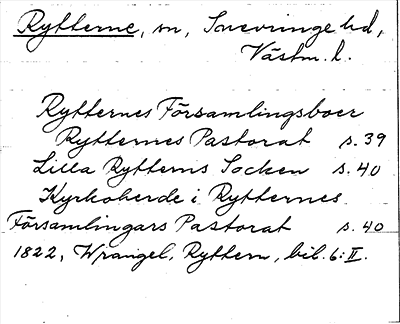 Rytterne, sn, Snevringe hd,
Västm. l.
Rytternes Församlingsboer
Rytternes Pastorat s. 39
Lilla Rytterns Socken s. 40
Kyrkoherde i Rytternes
Församlingars Pastorat s. 40
1822, Wrangel, Ryttern, bil. 6: II.